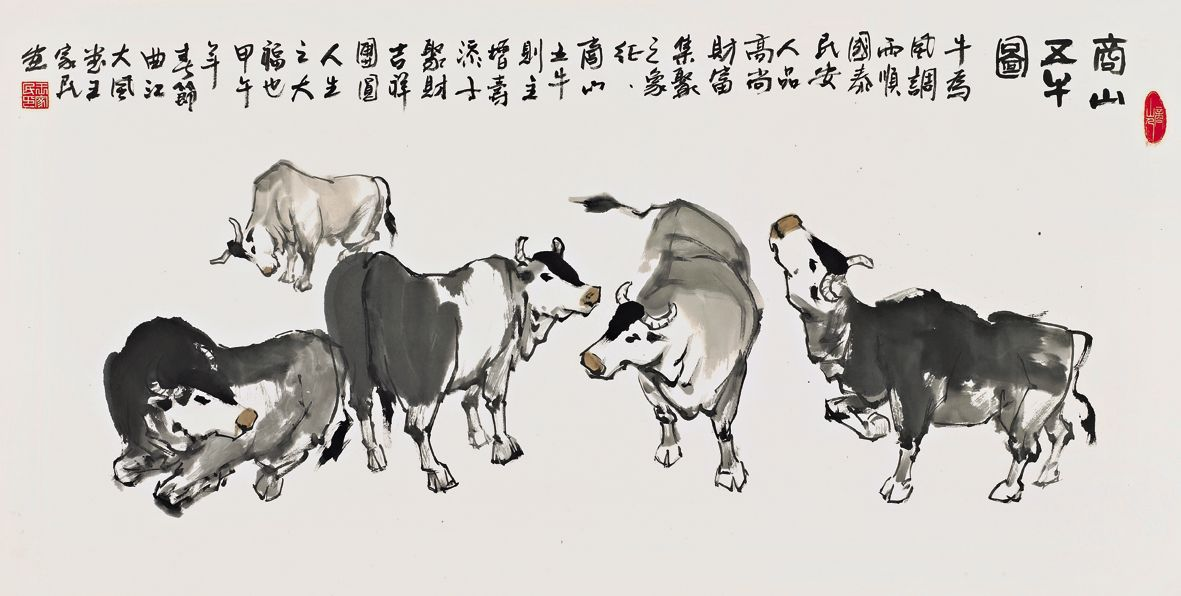 商山
五牛
圖
牛為
風調
雨順
國泰
民安
人品
高尚
財富
集聚
之象
征.
商山
五牛
則主
增壽
添丁
聚財
吉祥
團圓
人生
之大
福也
甲午
年
春節
曲江
大風
堂王
家民
画